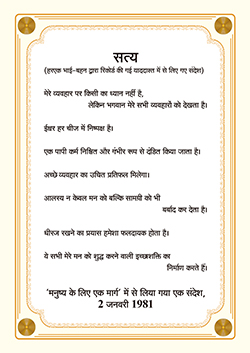 सत्य
(हरएक भाई-बहन द्वारा रिकोर्ड की गई याददास्त में से लिए गए संदेश)
मेरे व्यवहार पर किसी का ध्यान नहीं है,
लेकिन भगवान मेरे सभी व्यवहारों को देखता है।
ईश्वर हर चीज में निष्पक्ष है।
एक पापी कर्म निश्चित और गंभीर रूप से दंडित किया जाता है।
अच्छे व्यवहार का उचित प्रतिफल मिलेगा।
आलस्य न केवल मन को बल्कि सामग्री को भी
बर्बाद कर देता है।
धीरज रखने का प्रयास हमेशा फलदायक होता है।
ये सभी मेरे मन को शुद्ध करने वाली इच्छाशक्ति का
निर्माण करते हैं।
'मनुष्य के लिए एक मार्ग' में से लिया गया एक संदेश,
2 जनवरी 1981